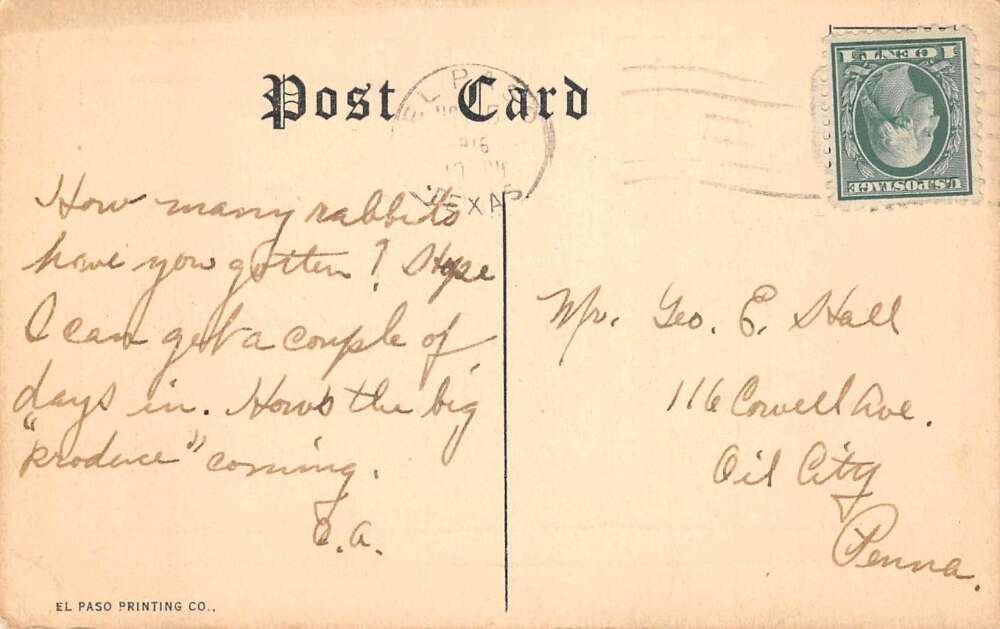 Post Card
EL PASO
TEXAS
1 CENT 1
U.S. POSTAGE
How many rabbits
have you gotten? Hope
I can get a couple of
days in. Hows the big
"produce" coming.
C.A.
Mr. Geo. E. Hall
116 Cowell Ave.
Oil City
Penna.
EL PASO PRINTING CO.,